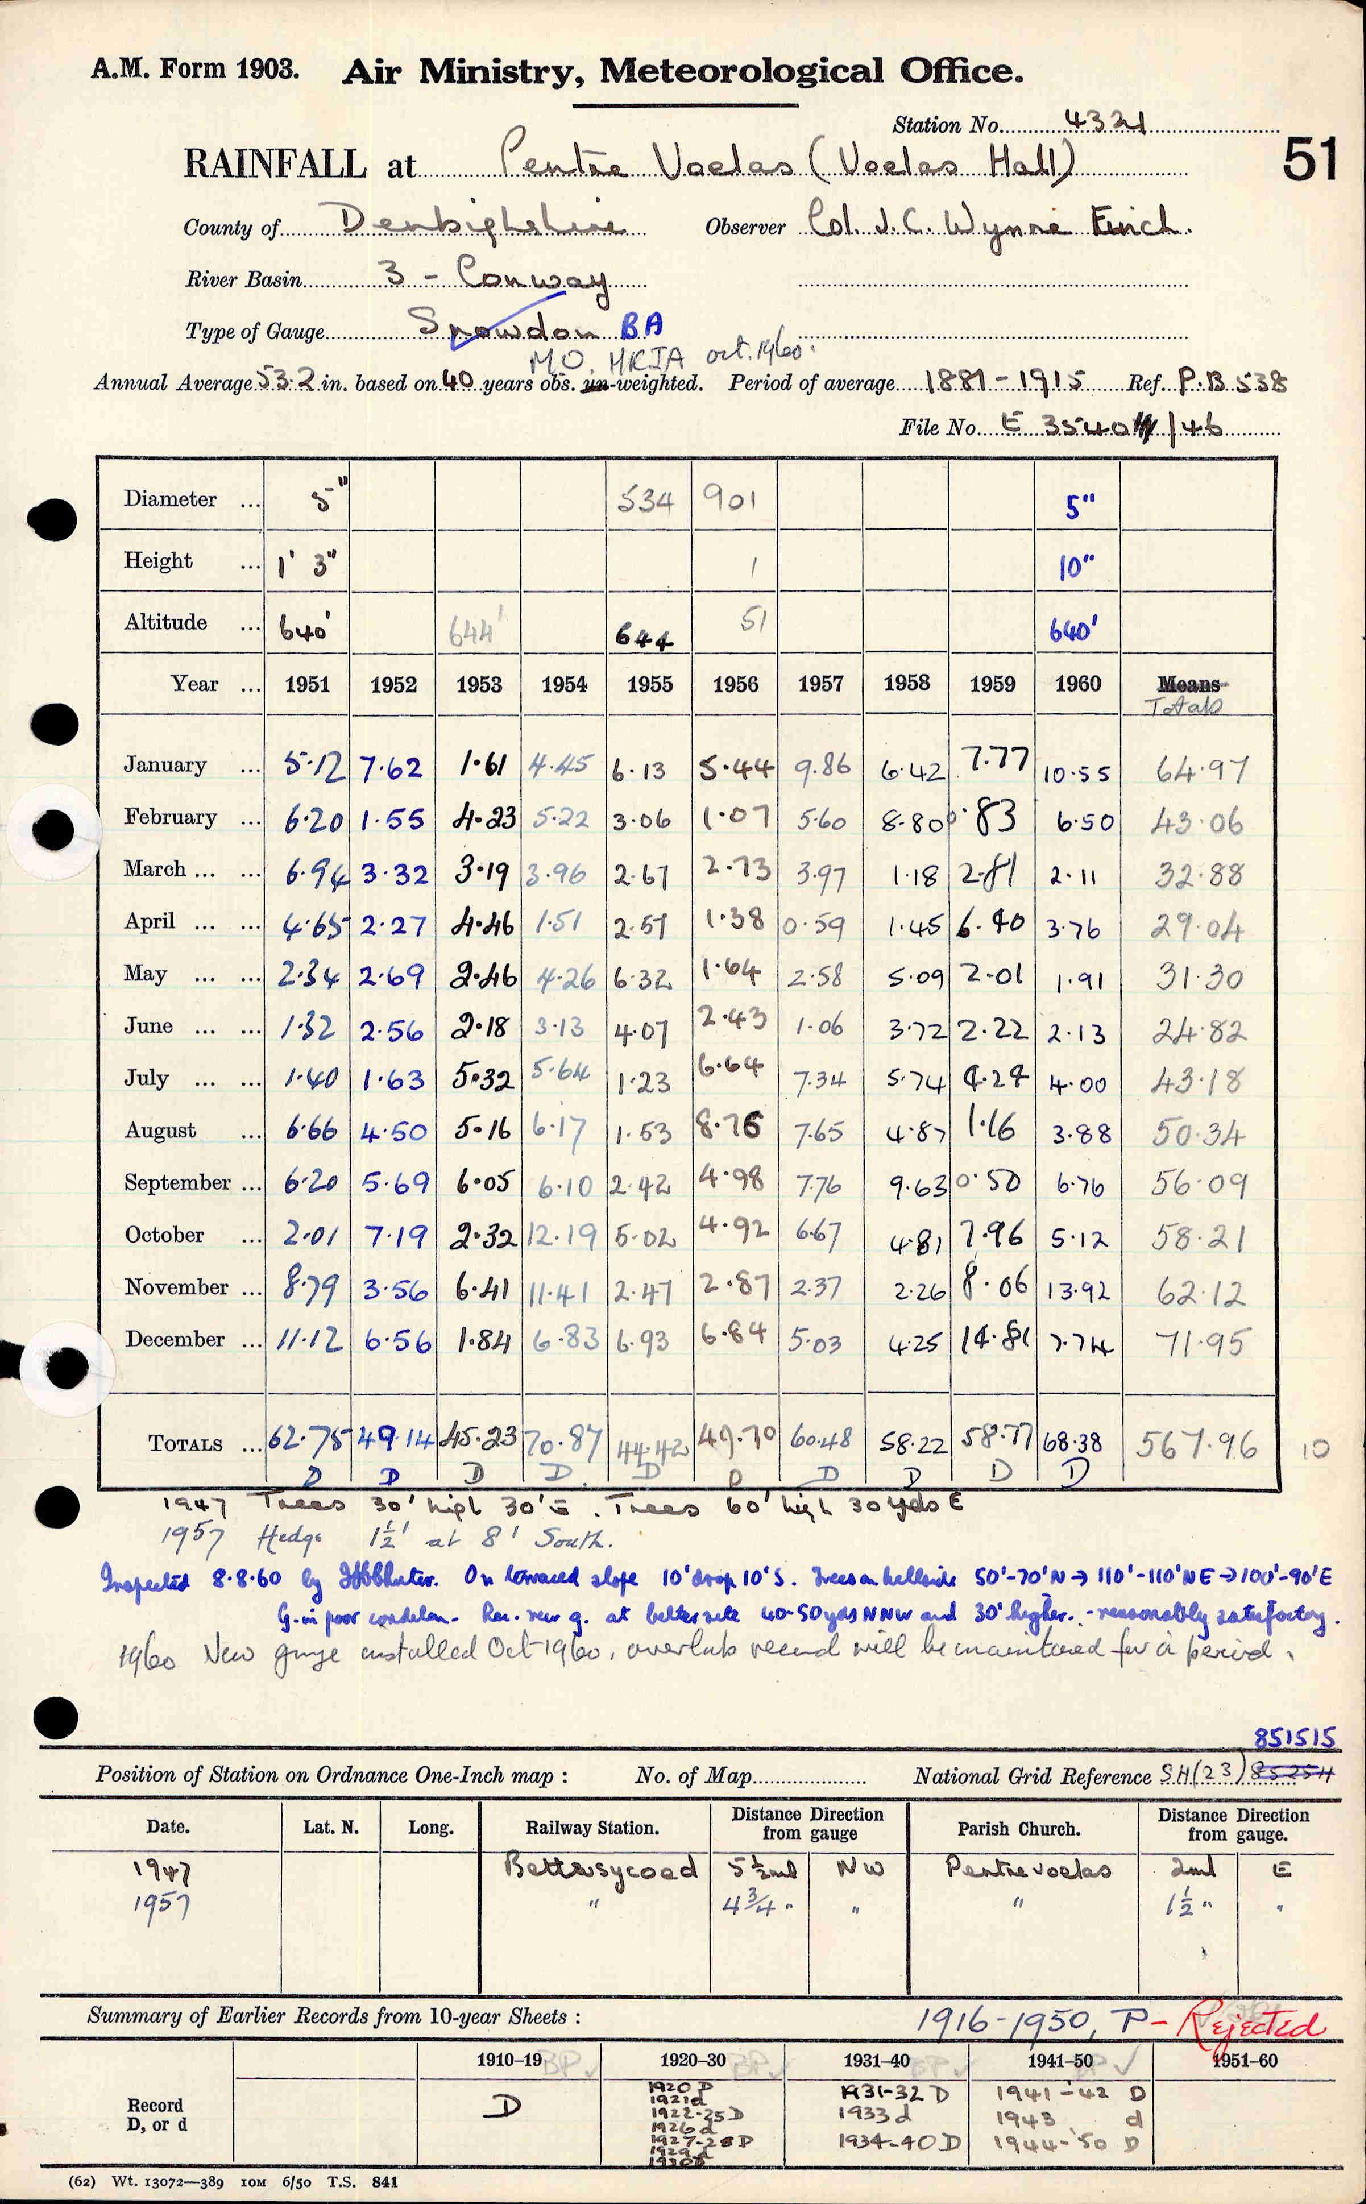 A.M. Form 1903. Air Ministry, Meteorological Office.
Station No. 4321
51
RAINFALL at Pentre Voelas (Voelas Hall)
County of Denbighshire Observer Col. J. C. Wynne Finch.
River Basin 3 - Conway
Type of Gauge Snowdon BA
M.O. MKIA Oct. 1960.
Annual Average 53.2 in. based on 40 years obs. un-weighted. Period of average 1881-1915 Ref. P.B 538
File No. E 3540 /46
Diameter ... 5" 534 901 5"
Height ... 1' 3" 1 10"
Altitude ... 640' 644' 644 51 640'
Year ... 1951 1952 1953 1954 1955 1956 1957 1958 1959 1960 Means
Totals
January ... 5.12 7.62 1.61 4.45 6.13 5.44 9.86 6.42 7.77 10.55 64.97
February ... 6.20 1.55 4.23 5.22 3.06 1.07 5.60 8.80 0.83 6.50 43.06
March ... ... 6.94 3.32 3.19 3.96 2.67 2.73 3.97 1.18 2.81 2.11 32.88
April ... ... 4.65 2.27 4.46 1.51 2.57 1.38 0.59 1.45 6.40 3.76 29.04
May ... ... 2.34 2.69 2.46 4.26 6.32 1.64 2.58 5.09 2.01 1.91 31.30
June ... ... 1.32 2.56 2.18 3.13 4.07 2.43 1.06 3.72 2.22 2.13 24.82
July ... ... 1.40 1.63 5.32 5.64 1.23 6.64 7.34 5.74 4.24 4.00 43.18
August ... 6.66 4.50 5.16 6.17 1.53 8.76 7.65 4.87 1.16 3.88 50.34
September ... 6.20 5.69 6.05 6.10 2.42 4.98 7.76 9.63 0.50 6.76 56.09
October ... 2.01 7.19 2.32 12.19 5.02 4.92 6.67 4.81 7.96 5.12 58.21
November ... 8.79 3.56 6.41 11.41 2.47 2.87 2.37 2.26 8.06 13.92 62.12
December ... 11.12 6.56 1.84 6.83 6.93 6.84 5.03 4.25 14.81 7.74 71.95
TOTALS ... 62.75 49.14 45.23 70.87 44.42 49.70 60.48 58.22 58.77 68.38 567.96 10
D D D D D D D D D D
1947 Trees 30' high 30' E. Trees 60' high 30 yds E
1957 Hedge 1½' at 8' South.
Inspected 8.8.60 by On terraced slope 10' drop 10' S. Trees on hillside 50'-70'N → 110'-110'NE → 100'-90'E
G. in poor condition. Rec. new g. at better site 40-50 yds NNW and 30' higher. - reasonably satisfactory.
1960 New gauge installed Oct 1960, overlap record will be maintained for a period.
851515
Position of Station on Ordnance One-Inch map : No. of Map National Grid Reference SH(23) 85254
Date. Lat. N. Long. Railway Station. Distance Direction from gauge Parish Church. Distance Direction from gauge.
1947 Bettwsycoed 5½ml NW Pentrevoelas 2ml E
1957 " 4¾ " " " 1½ " "
Summary of Earlier Records from 10-year Sheets : 1916-1950, P - Rejected
1910-19 1920-30 1931-40 1941-50 1951-60
Record D, or d
D
1920 D
1921 d
1922-25 D
1926 d
1927-28 D
1929 d
1930 D
1931-32 D
1933 d
1934-40 D
1941-'42 D
1943 d
1944-'50 D
(62) Wt. 13072—389 10M 6/50 T.S. 841